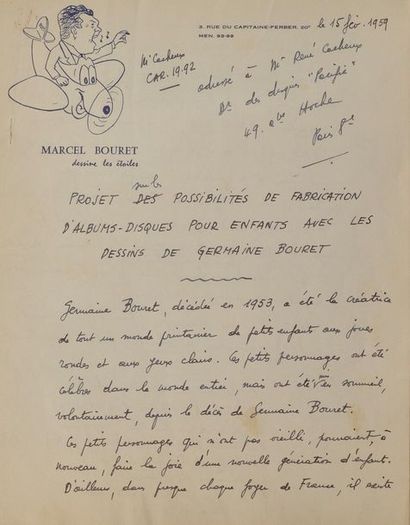 3, RUE DU CAPITAINE-FERBER, 20e
MEN. 92-92
le 15 fév. 1959
Mr Cacheux
CAR. 19.92
adressé à Mr René Cacheux
Dr des disques "Pacific"
49. ave Hoche
Paris 8e
MARCEL BOURET
dessine les étoiles
sur les
PROJET DES POSSIBILITÉS DE FABRICATION
D'ALBUMS-DISQUES POUR ENFANTS AVEC LES
DESSINS DE GERMAINE BOURET
Germaine Bouret, décédée en 1953, a été la créatrice
de tout un monde printanier de petits enfants aux joues
rondes et aux yeux clairs. Ces petits personnages ont été
célèbres dans le monde entier, mais ont été mis en sommeil,
volontairement, depuis le décès de Germaine Bouret.
Ces petits personnages qui n'ont pas vieilli, pourraient, à
nouveau, faire la joie d'une nouvelle génération d'enfants.
D'ailleurs, dans presque chaque foyer de France, il existe